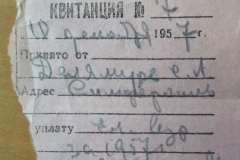 КВИТАНЦИЯ № 7
18 декабря 1957 г.
Принято от
Делямуре С. А
Адрес Симферополь
уплату чл. взн
за 1957 г